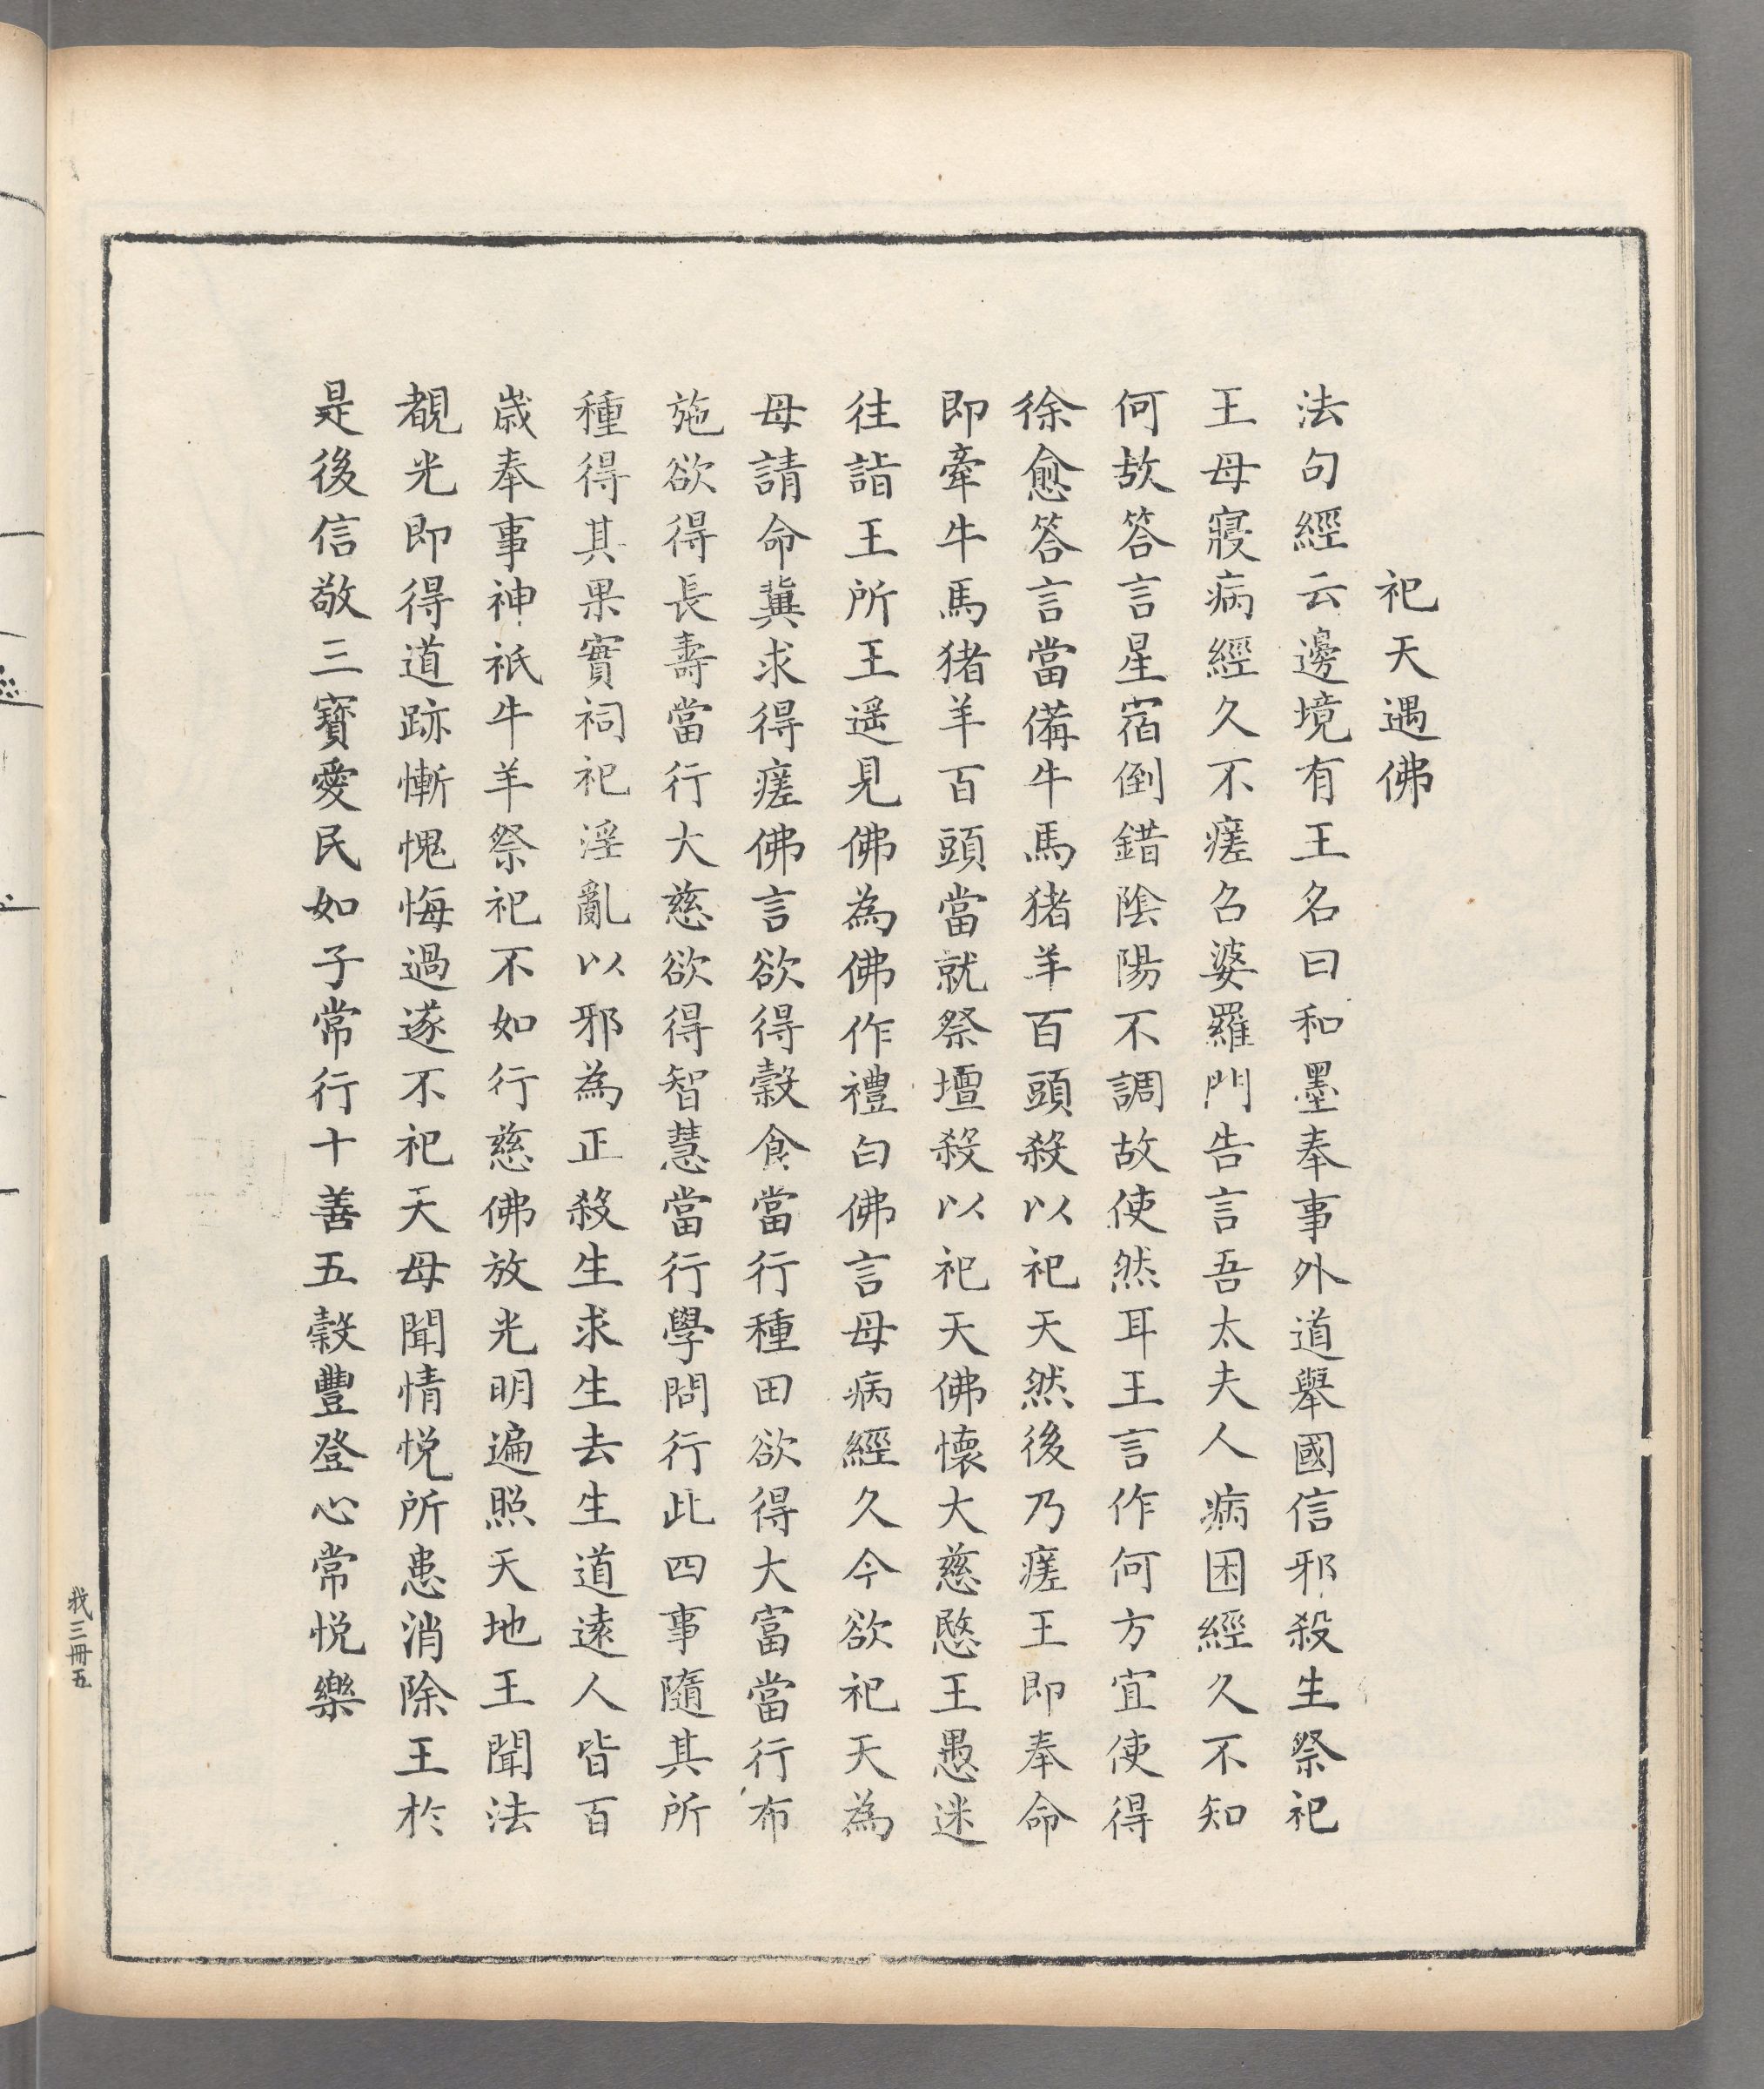 祀天遇佛
法句經云邊境有王名曰和墨奉事外道舉國信邪殺生祭祀
王母寢病經久不瘥召婆羅門告言吾太夫人病困經久不知
何故答言星宿倒錯陰陽不調故使然耳王言作何方宜使得
徐愈答言當備牛馬猪羊百頭殺以祀天然後乃瘥王即奉命
即牽牛馬猪羊百頭當就祭壇殺以祀天佛懷大慈愍王愚迷
往詣王所王遥見佛為佛作禮白佛言母病經久今欲祀天為
母請命冀求得瘥佛言欲得穀食當行種田欲得大富當行布
施欲得長壽當行大慈欲得智慧當行學問行此四事隨其所
種得其果實祠祀淫亂以邪為正殺生求生去生道遠人皆百
歲奉事神祇牛羊祭祀不如行慈佛放光明遍照天地王聞法
覩光即得道跡慚愧悔過遂不祀天母聞情悦所患消除王於
是後信敬三寳愛民如子常行十善五穀豐登心常悦樂
我三冊五